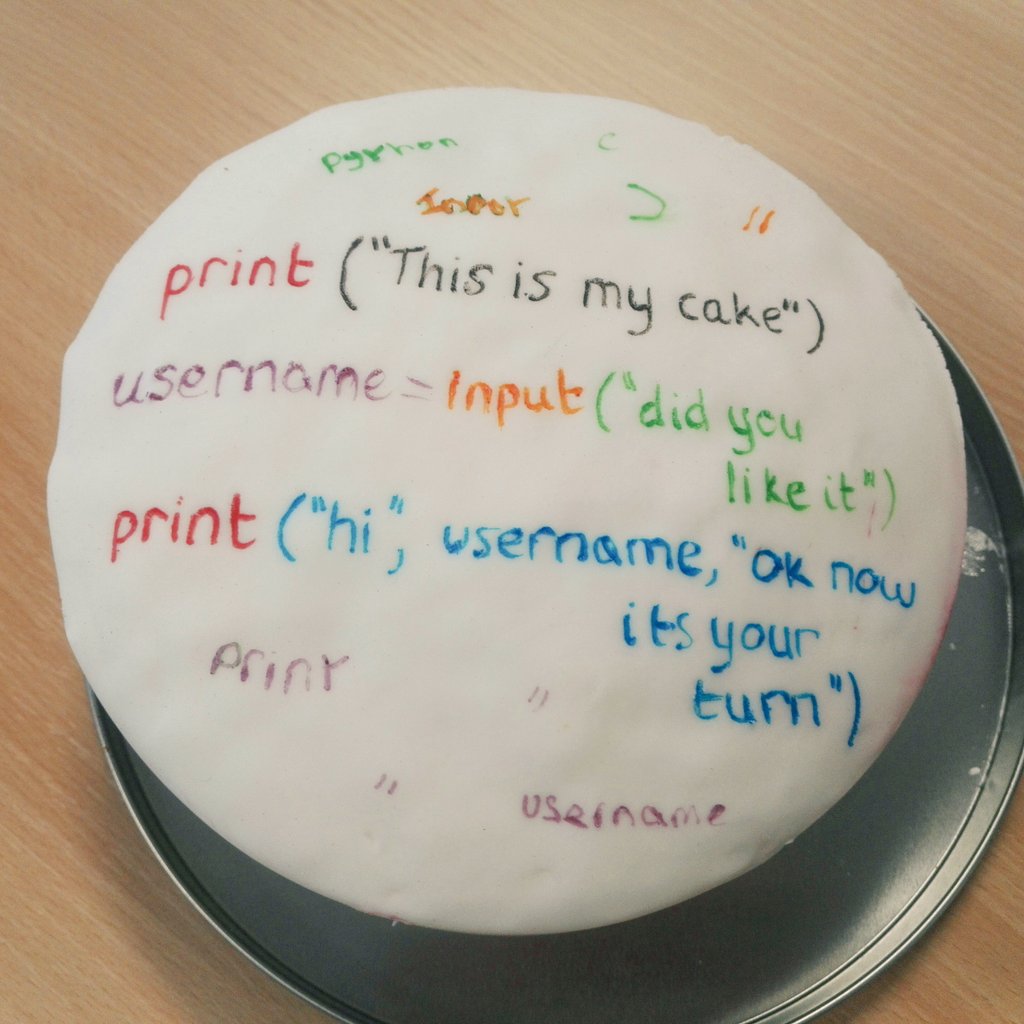 python (
Input ) "
print ("This is my cake")
username = Input ("did you
like it")
print ("hi", username, "ok now
its your
turn")
print "
" username